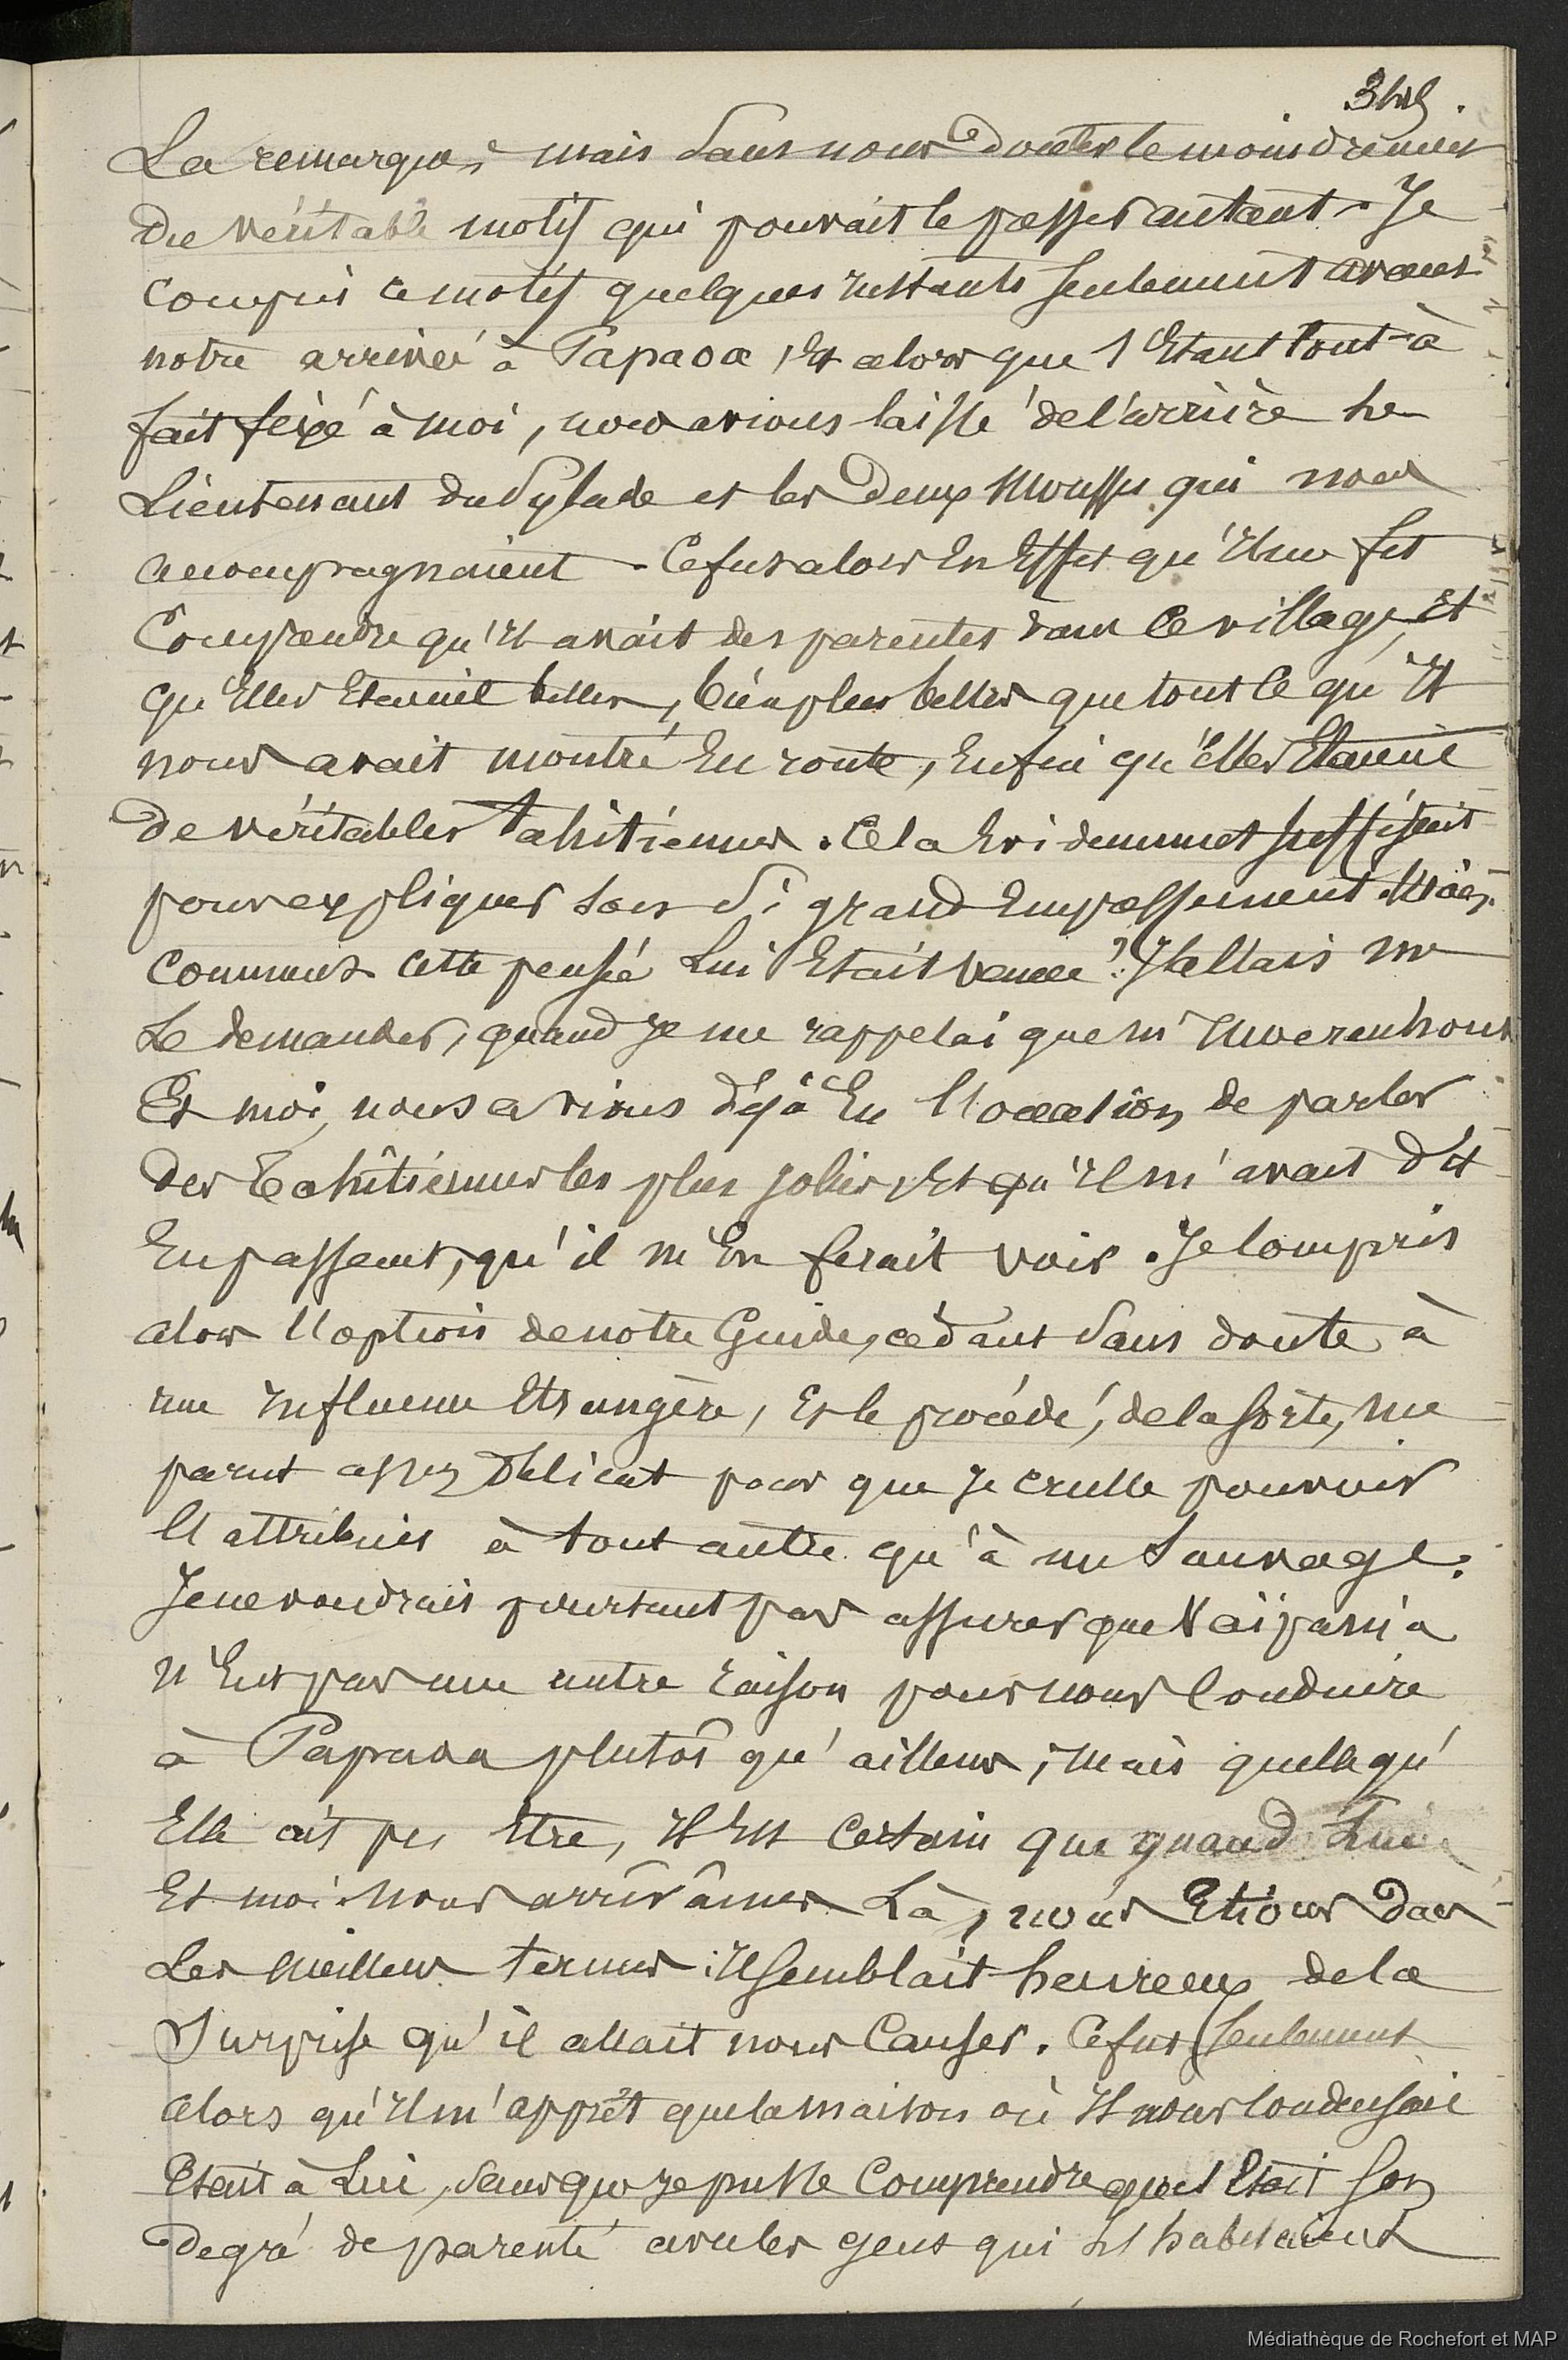 La remarque, mais sans nous douter le moins du monde
du véritable motif qui pouvait le presser autant. Je
compris ce motif quelques instants seulement avant
notre arrivée à Papaoa, et alors que s'étant tout-à
fait fixé à moi, nous avions laissé de l'arrière le
Lieutenant du Pylade et les deux mousses qui nous
accompagnaient. Ce fut alors en effet qu'il me fit
Comprendre qu'il avait des parentes dans ce village, et
qu'elles étaient belles, bien plus belles que tout ce qu'il
nous avait montré en route, enfin qu'elles étaient
de véritables tahitiennes. Cela évidemment suffisait
pour expliquer son si grand empressement. Mais
comment cette pensée Lui était venue? J'allais me
Le demander, quand je me rappelai que Mr Moerenhout
Et moi, nous avions déjà eu l'occasion de parler
des tahitiennes les plus jolies, et qu'il m'avait dit
En passant, qu'il m'en ferait voir. Je compris
alors l'option de notre Guide, cédant sans doute à
une influence étrangère, et le procédé, de la sorte, me
parut assez délicat pour que je crusse pouvoir
l'attribuer à tout autre qu'à un Sauvage.
Je ne voudrais pourtant pas assurer que Vaïpania
n'eut pas une autre raison pour nous conduire
à Papaoa plutôt qu'ailleurs; mais quelle qu'
Elle ait pu être, il est certain que quand Lui
Et moi nous arrivâmes Là, nous étions dans
Les meilleurs termes: il semblait heureux de la
Surprise qu'il allait nous causer. Ce fut seulement
alors qu'il m'apprit que la maison où il nous conduisait
était à Lui, sans que je pusse Comprendre quel était son
degré de parenté avec les gens qui l'habitaient
Médiathèque de Rochefort et MAP